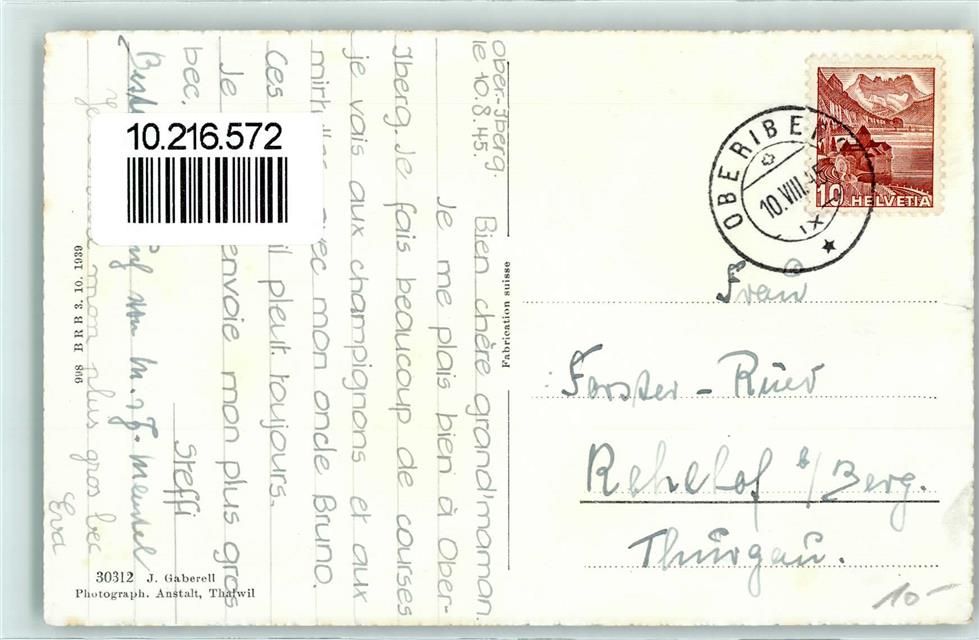 10.216.572
Ober-Iberg.
le 10.8.45.
Bien chère grand'maman.
Je me plais bien à Ober-
Iberg. Je fais beaucoup de courses
je vais aux champignons et aux
avec mon oncle Bruno.
Ces il pleut toujours.
Je envoie mon plus gros
bec.
Steffi
mon plus gros bec
Eva
998 B R B 3. 10. 1939
30312 J. Gaberell
Photograph. Anstalt, Thalwil
Fabrication suisse
OBERIBERG
10.VIII.45
IX
10 HELVETIA
Frau
Forster - Rüer
Rehehof b/Berg.
Thurgau.
10-